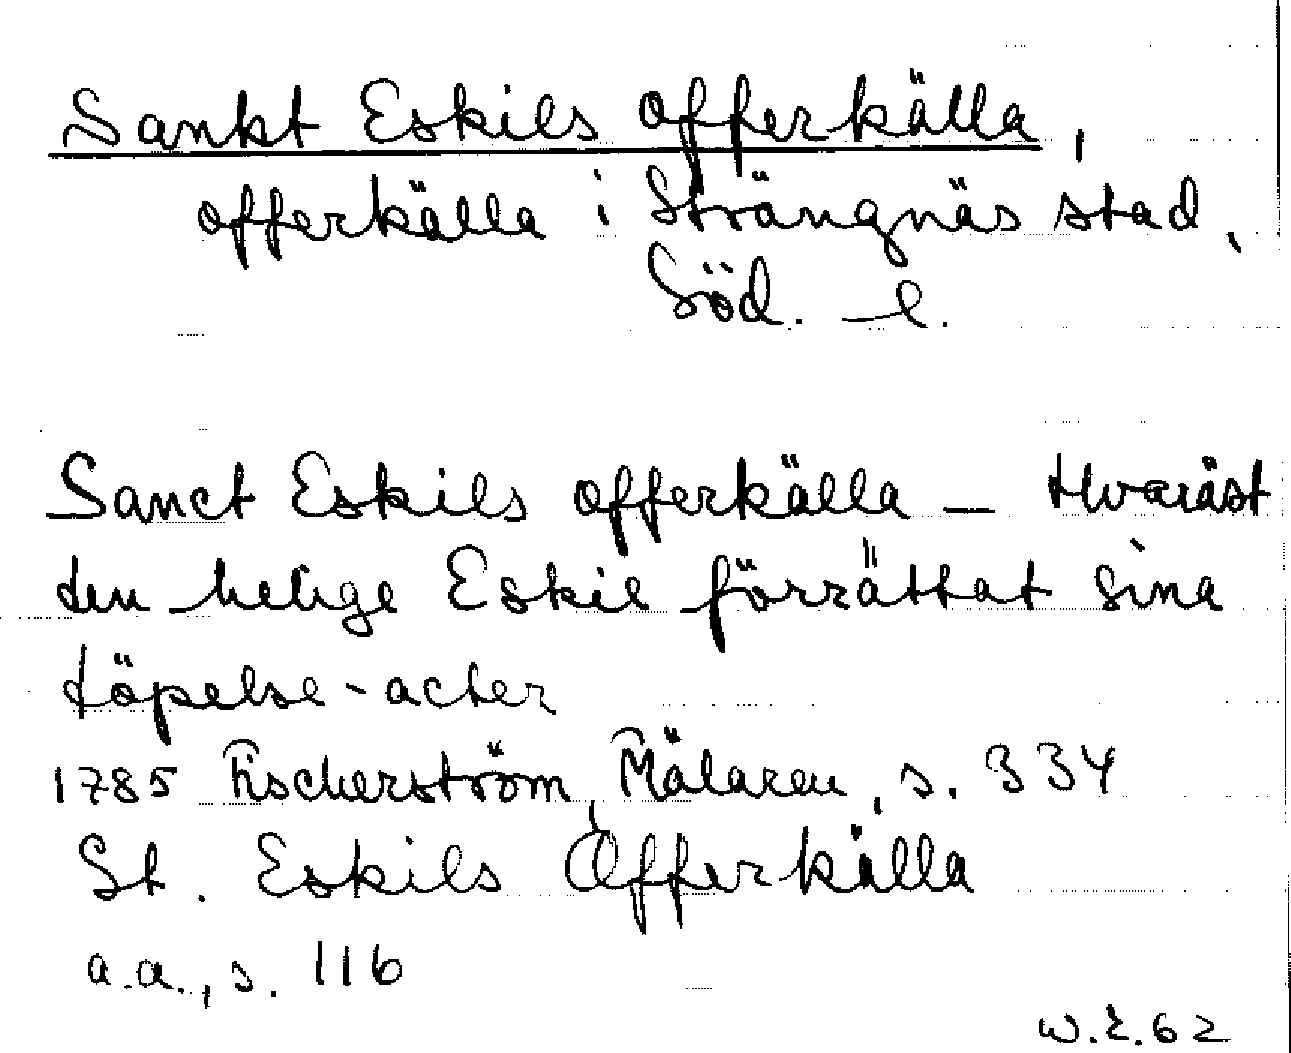 Sankt Eskils offerkälla,
offerkälla i Strängnäs stad,
Söd. l.
Sanct Eskils offerkälla – Hvaräst
den helige Eskil förrättat sina
döpelse-acter
1785 Fischerström, Mälaren, s. 334
St. Eskils Offerkälla
a.a., s. 116
W.E. 62